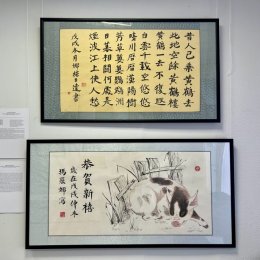 昔人已乘黄鶴去
此地空餘黄鶴樓
黄鶴一去不復返
白雲千載空悠悠
晴川歷歷漢陽樹
芳草萋萋鸚鵡洲
日暮鄉關何處是
煙波江上使人愁
戊戌冬月 書
恭賀新禧
歲在戊戌仲冬